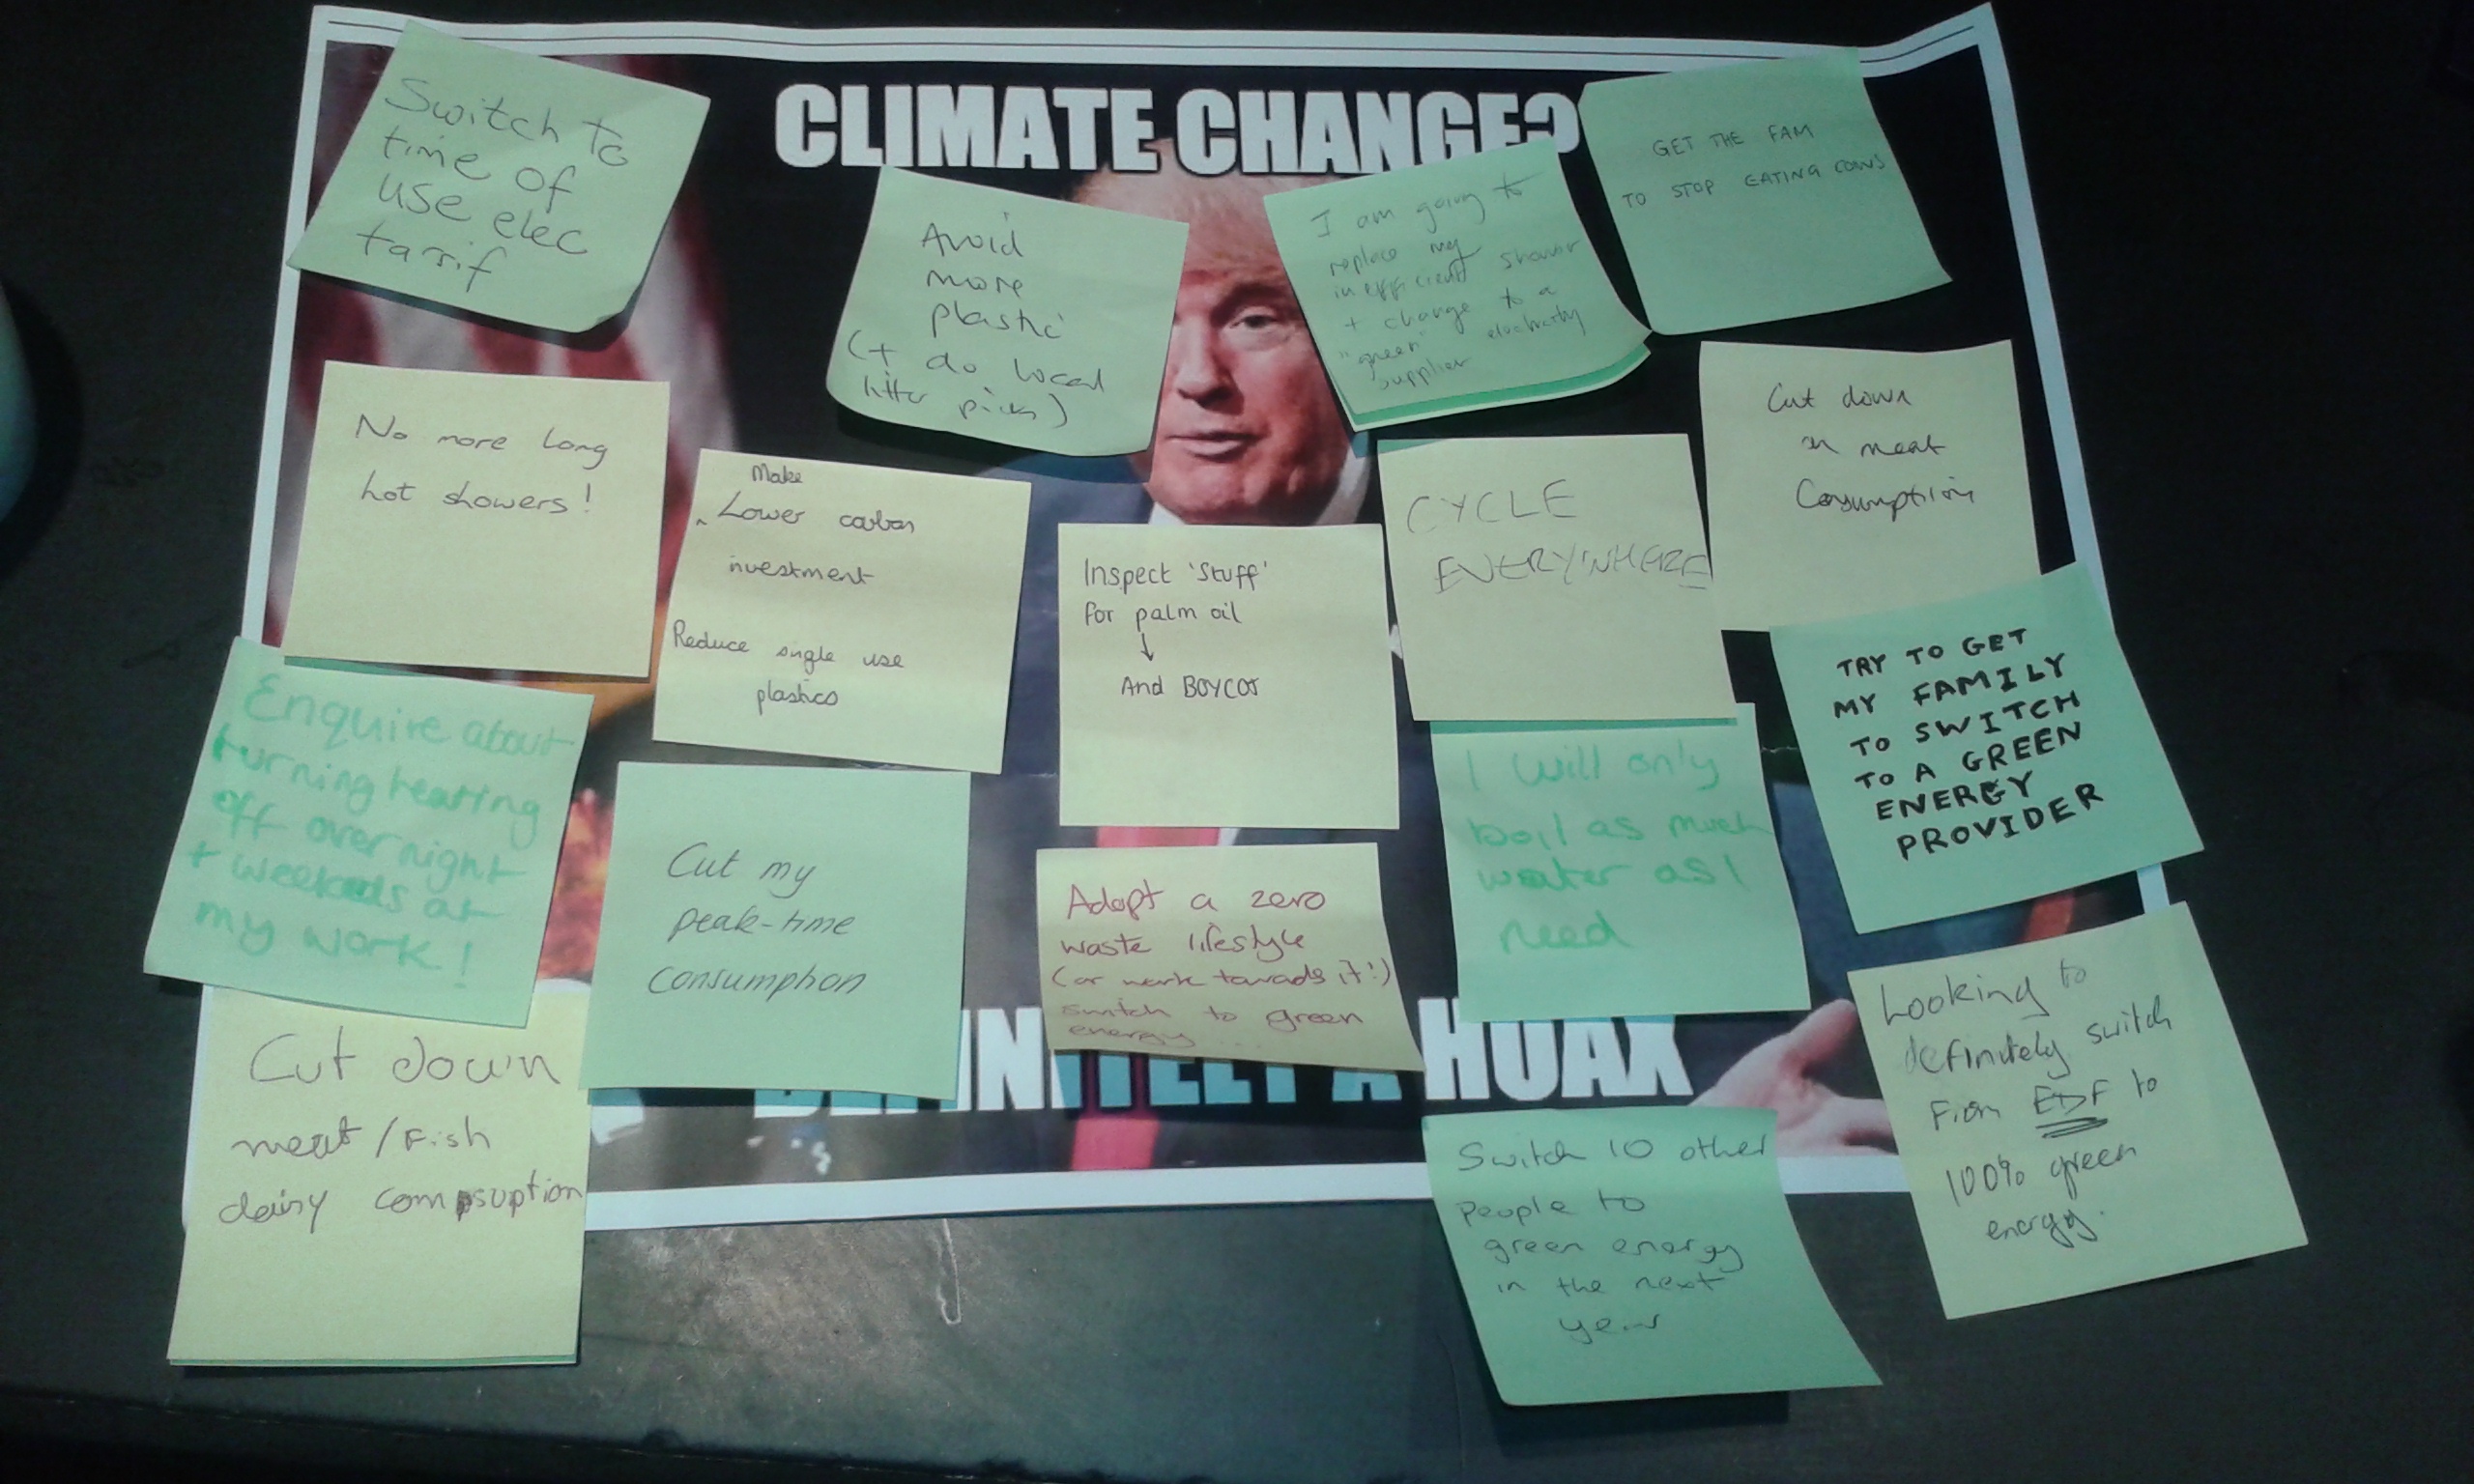 CLIMATE CHANGE?
Switch to
time of
use elec
tarrif
Avoid
more
plastic
(+ do local
litter picks)
I am going to
replace my
inefficient shower
+ change to a
"green" electricity
supplier
GET THE FAM
TO STOP EATING COWS
No more long
hot showers!
Make
^ Lower carbon
investment
Reduce single use
plastics
Inspect 'Stuff'
for palm oil
↓
And BOYCOT
CYCLE
EVERYWHERE
Cut down
on meat
Consumption
Enquire about
turning heating
off over night
+ weekends at
my work!
Cut my
peak-time
consumption
Adopt a zero
waste lifestyle
(or work towards it!)
switch to green
energy...
I will only
boil as much
water as I
need
TRY TO GET
MY FAMILY
TO SWITCH
TO A GREEN
ENERGY
PROVIDER
Cut down
meat/Fish
dairy compsuption
DEFINITELY A HOAX
Switch 10 other
people to
green energy
in the next
year
Looking to
definitely switch
From EDF to
100% green
energy.